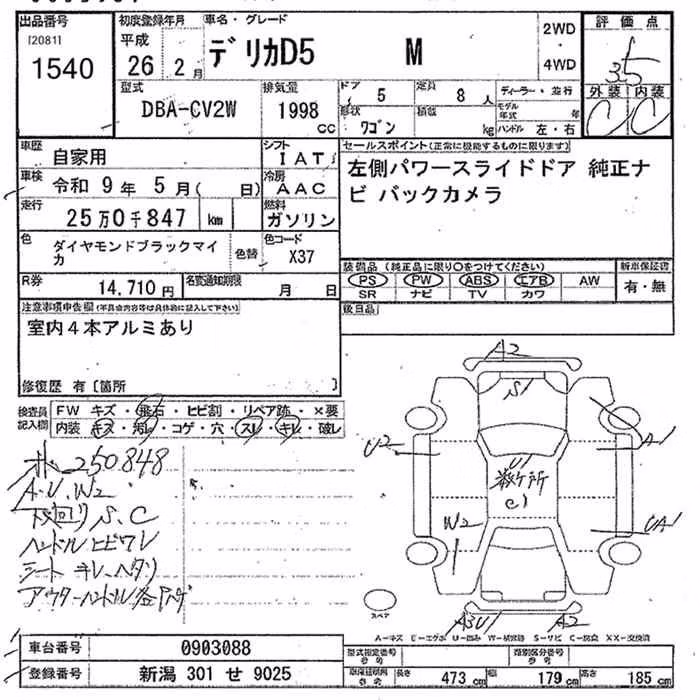 出品番号
[2081]
1540
初度登録年月
平成
26 2月
車名・グレード
デリカD5 M
2WD
4WD
評価点
3.5
外装 内装
C C
型式
DBA-CV2W
排気量
1998
CC
ドア
5
定員
8人
形状
ワゴン
積載
kg
ディーラー・並行
モデル年式 年
ハンドル 左・右
車歴
自家用
シフト
IAT
セールスポイント(正常に機能するものに限ります)
左側パワースライドドア 純正ナ
ビ バックカメラ
車検
令和 9年 5月( 日)
冷房
AAC
走行
25万0千847 km
燃料
ガソリン
色
ダイヤモンドブラックマイ
カ
色替
色コード
X37
装備品(純正品に限り〇をつけてください)
PS PW ABS エアB AW
SR ナビ TV カワ
新車保証書
有・無
R券
14,710円
名変通知期限
月 日
後日品
注意事項申告欄(不具合内容等は具体的に記入して下さい)
室内4本アルミあり
修復歴 有〔箇所 〕
検査員
記入欄
FW キズ・飛石・ヒビ割・リペア跡・×要
内装 キズ・汚レ・コゲ・穴・スレ・キレ・破レ
250848
A.U.W2
下回り S.C
ハンドルヒビワレ
シート キレ、ヘタリ
アウターハンドル各
A2
S1
A1
U2
U1
数ケ所
C1
W2
UA1
A3U1
A2
スペア
A-キズ E-エクボ U-凹み W-補修跡 S-サビ C-腐食 XX-交換済
車台番号
0903088
登録番号
新潟 301 せ 9025
型式指定番号
参考
類別区分番号
参考
車検証明
参考
長さ 473cm
幅 179cm
高さ 185cm